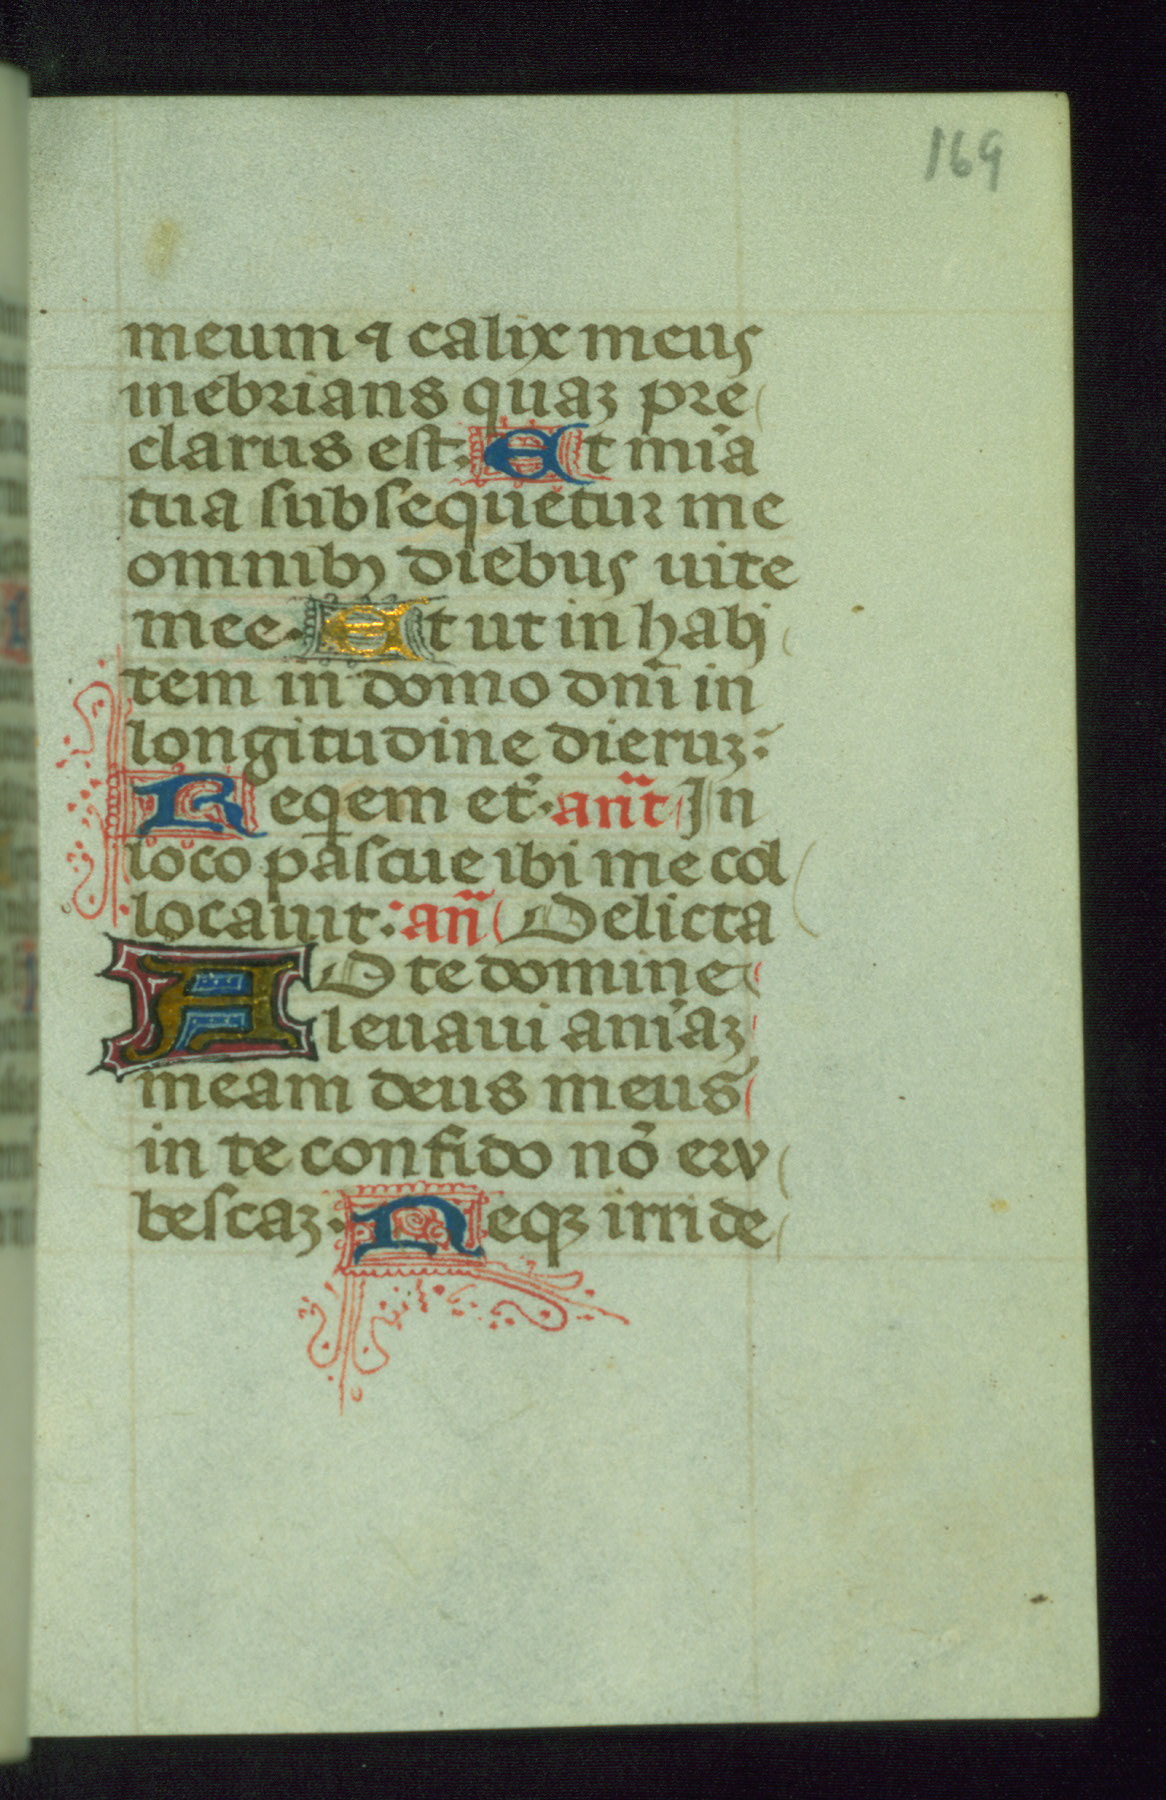 169
meum ⁊ calix meus
inebrians quaꝫ pre
clarus est: Et mi̅a
tua subsequetur me
omnibꝯ diebus uite
mee. Et ut in habi
tem in domo dn̅i in
longitudine dieruꝫ:
Reqem et̉. an̅t In
loco pascue ibi me col
locauit: an̅ Delicta
AD te domine
leuaui ani̅aꝫ
meam deus meus
in te confido no̅ eru
bescaꝫ. Neqꝫ irride